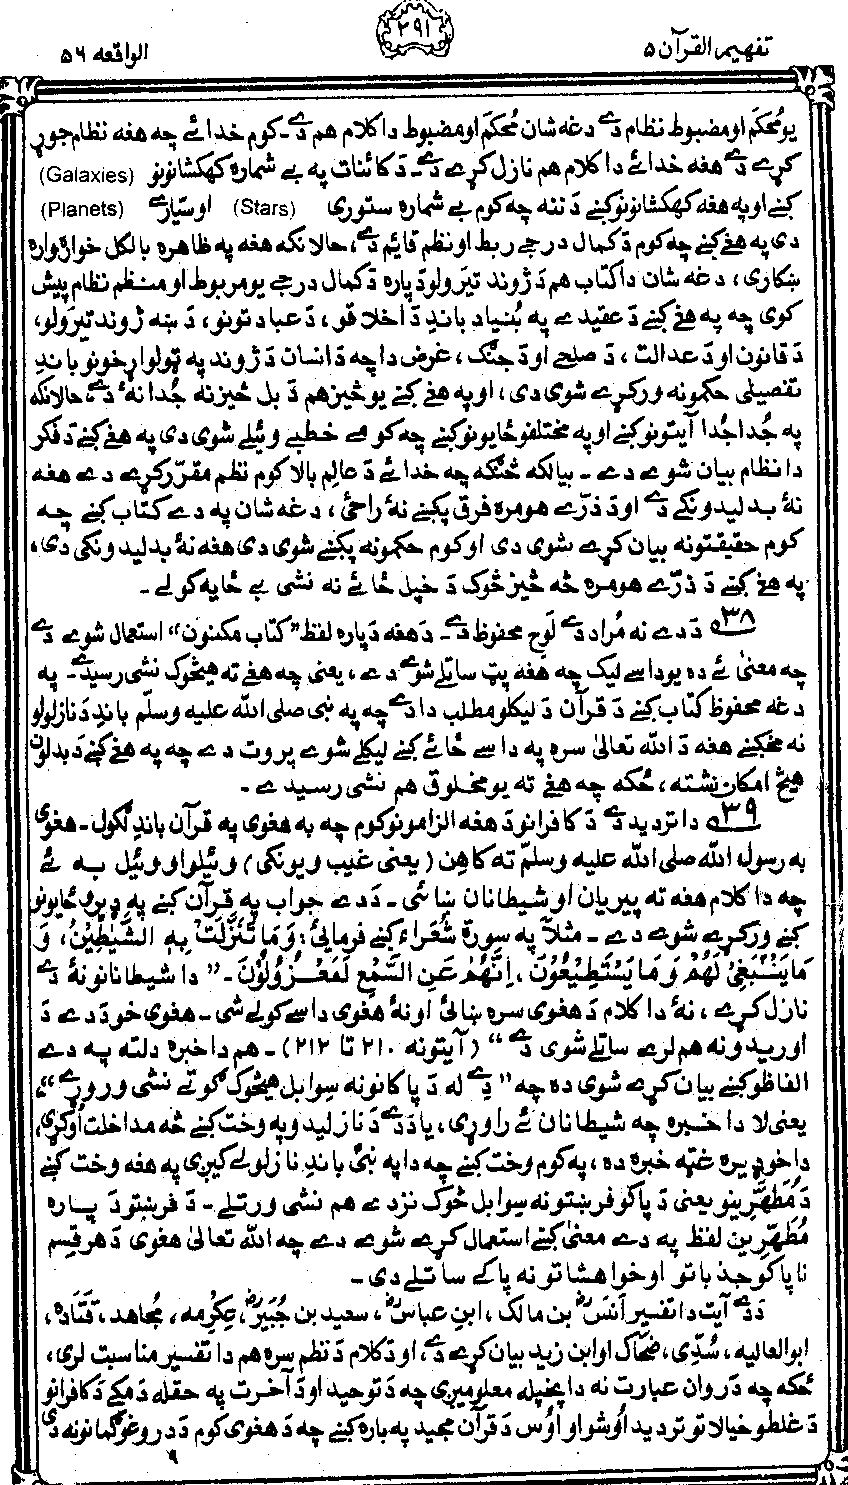 تفهیم القرآن ۵
۳۹۱
الواقعه ۵۶
یو مُحکم او مضبوط نظام دے دغه شان مُحکم او مضبوط دا کلام هم دے۔ کوم خدائے چه هغه نظام جوړ
کړے دے هغه خدائے دا کلام هم نازل کړے دے۔ دَ کائنات په بے شماره کهکشانونو (Galaxies)
کښے او په هغه کهکشانونو کښے دَ ننه چه کوم بے شماره ستوری (Stars) او سیّارے (Planets)
دی په هغے کښے چه کوم دَ کمال درجے ربط او نظم قایم دے، حالانکه هغه په ظاهره بالکل خواره واره
ښکاری، دغه شان دا کتاب هم دَ ژوند تیرولو دَ پاره دَ کمال درجے یو مربوط او منظم نظام پیش
کوی چه په هغے کښے دَ عقیدے په بُنیاد باندِ دَ اخلاقو، دَ عباداتونو، دَ ښه ژوند تیرولو،
دَ قانون او دَ عدالت، دَ صلحے او دَ جنګ، غرض دا چه دَ انسان دَ ژوند په ټولو اړخونو باندِ
تفصیلی حکمونه ورکړے شوی دی، او په هغے کښے یو څیز هم دَ بل څیز نه جُدا نهٔ دے، حالانکه
په جُدا جُدا آیتونو کښے او په مختلفو ځایونو کښے چه کومے خطبے وئیلے شوی دی په هغے کښے دَ فکر
دا نظام بیان شوے دے۔ بیا لکه څنګه چه خدائے دَ عالمِ بالا کوم نظم مقرّر کړے دے هغه
نهٔ بدلیدونکے دے او دَ ذرّے هومره فرق پکښے نهٔ راځی، دغه شان په دے کتاب کښے چه
کوم حقیقتونه بیان کړے شوی دی او کوم حکمونه پکښے شوی دی هغه نهٔ بدلیدونکی دی،
په هغے کښے دَ ذرّے هومره څه څیز څوک دَ خپل ځائے نه نشی بے ځایه کولے۔
۳۸؎ دَ دے نه مُراد دے لَوحِ محفوظ دے۔ دَ هغه دَ پاره لفظ ”کتابِ مکنون“ استعمال شوے دے
چه معنیٰ ئے ده یو داسے لیک چه هغه پټ ساتلے شوے دے، یعنی چه هغے ته هیڅوک نشی رسیدے۔ په
دغه محفوظ کتاب کښے دَ قرآن دَ لیکلو مطلب دا دے چه په نبی صلی الله علیه وسلّم باندِ دَ نازلولو
نه مخکښے هغه دَ الله تعالیٰ سره په داسے ځائے کښے لیکلے شوے پروت دے چه په هغے کښے دَ بدلون
هیڅ امکان نشته، ځکه چه هغے ته یو مخلوق هم نشی رسیدے۔
۳۹؎ دا تردید دے دَ کافرانو دَ هغه الزامونو کوم چه به هغوی په قرآن باندِ لګول۔ هغوی
به رسول الله صلی الله علیه وسلّم ته کاهِن (یعنی غیب ویونکی) وئیلو او وئیل به ئے
چه دا کلام هغه ته پیریان او شیطانان ښائی۔ دَ دے جواب په قرآن کښے په ډیرو ځایونو
کښے ورکړے شوے دے۔ مثلاً په سورهٔ شُعَراء کښے فرمائی: وَمَا تَنَزَّلَتْ بِهِ الشَّيٰطِيْنُ، وَ
مَا يَنْۢبَغِيْ لَهُمْ وَمَا يَسْتَطِيْعُوْنَ، اِنَّهُمْ عَنِ السَّمْعِ لَمَعْزُوْلُوْنَ۔ ”دا شیطانانو نهٔ دے
نازل کړے، نهٔ دا کلام دَ هغوی سره ښائی او نهٔ هغوی داسے کولے شی۔ هغوی خو دَ دے دَ
اوریدو نه هم لرے ساتلے شوی دی“ (آیتونه ۲۱۰ تا ۲۱۲)۔ هم دا خبره دلته په دے
الفاظو کښے بیان کړے شوی ده چه ”دِے له دَ پاکانو نه سِوا بل هیڅوک ګوتے نشی وروړے“،
یعنی لا دا خبره چه شیطانان ئے راوړی، یا دَ دے دَ نازلیدو په وخت کښے څه مداخلت اُوکړی،
دا خو ډیره غټه خبره ده، په کوم وخت کښے چه دا په نبیؐ باندِ نازلولے کیږی په هغه وخت کښے
دَ مُطَهَّرِینو یعنی دَ پاکو فرښتو نه سِوا بل څوک نزدے هم نشی ورتلے۔ دَ فرښتو دَ پاره
مُطَهَّرین لفظ په دے معنیٰ کښے استعمال کړے شوے دے چه الله تعالیٰ هغوی دَ هر قِسم
ناپاکو جذباتو او خواهشاتو نه پاک ساتلے دی۔
دَ دے آیت دا تفسیر اَنَسؓ بن مالک، ابنِ عباسؓ، سعید بن جُبیرؓ، عِکرِمه، مُجاهد، قَتاده،
ابوالعالیه، سُدّی، ضحّاک او ابن زید بیان کړے دے، او دَ کلام دَ نظم سره هم دا تفسیر مناسبت لری،
ځکه چه دَ روان عبارت نه دا پخپله معلومیږی چه دَ توحید او دَ آخرت په حقله دَ مکے دَ کافرانو
دَ غلطو خیالاتو تردید اُوشو او اُوس دَ قرآن مجید په باره کښے چه دَ هغوی کوم دَ دروغو ګمانونه دی
۹